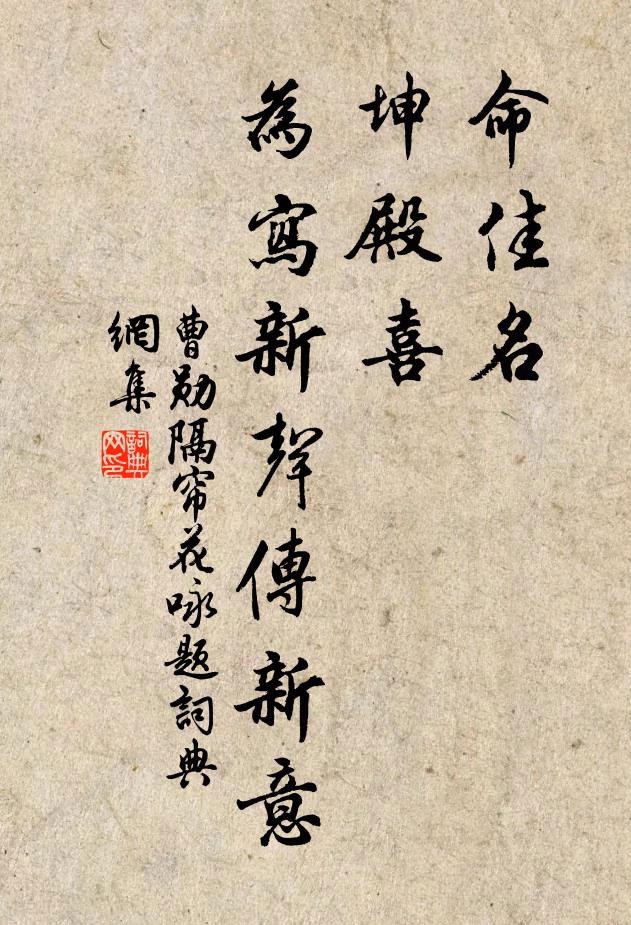 命佳名
坤殿喜
為寫新聲傳新意
曹勛隔帘花咏題詞典
網集
詞典
网印